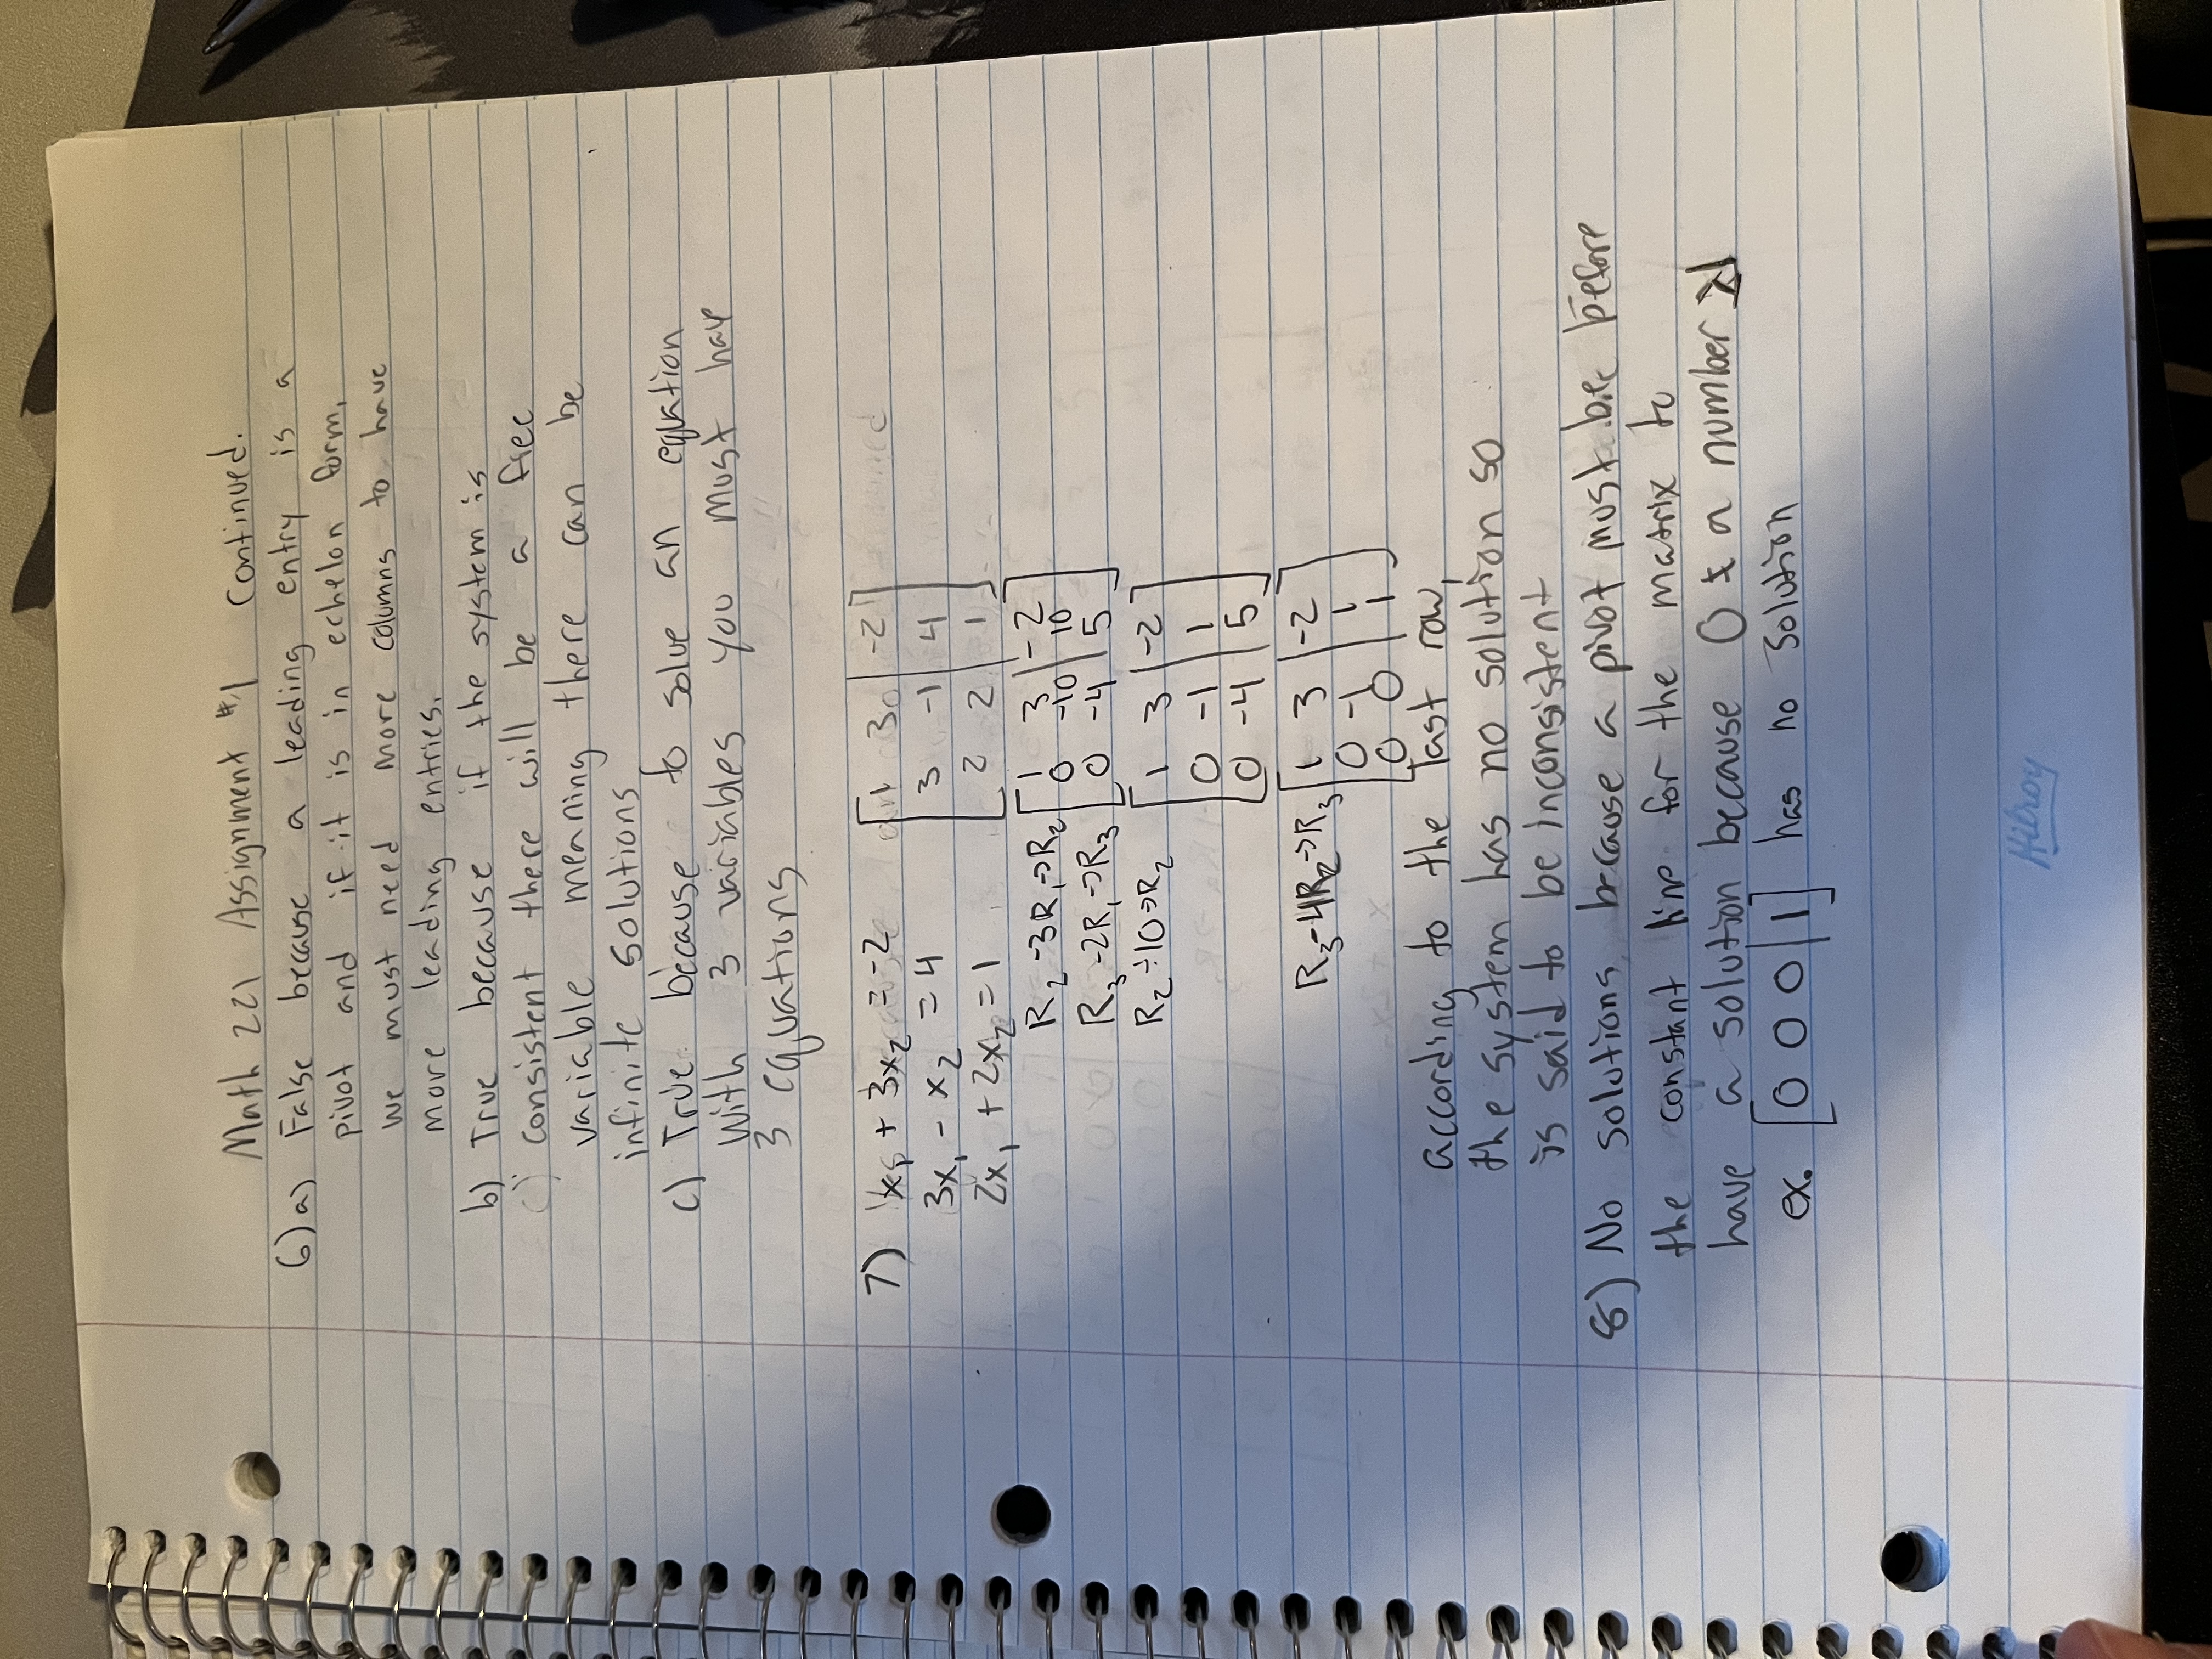 Math 221 Assignment #1 Continued.
6) a) False because a leading entry is a
pivot and if it is in echelon form,
we must need more columns to have
more leading entries.
b) True because if the system is
consistent there will be a free
variable meaning there can be
infinite solutions
c) True because to solve an equation
With 3 variables you must have
3 equations
7) 1x₁ + 3x₂ = -2 [1 3 | -2]
3x₁ - x₂ = 4 [3 -1 | 4]
2x₁ + 2x₂ = 1 [2 2 | 1]
R₂ -3R₁->R₂ [1 3 | -2]
[0 -10 | 10]
R₃ -2R₁->R₃ [0 -4 | 5]
R₂ ÷10->R₂ [1 3 | -2]
[0 -1 | 1]
[0 -4 | 5]
R₃-4R₂->R₃ [1 3 | -2]
[0 -1 | 1]
[0 0 | 1]
according to the last row,
the system has no solution so
is said to be inconsistent
8) No solutions because a pivot must be before
the constant line for the matrix to
have a solution because 0 ≠ a number
ex. [0 0 0 | 1] has no solution
Hilroy